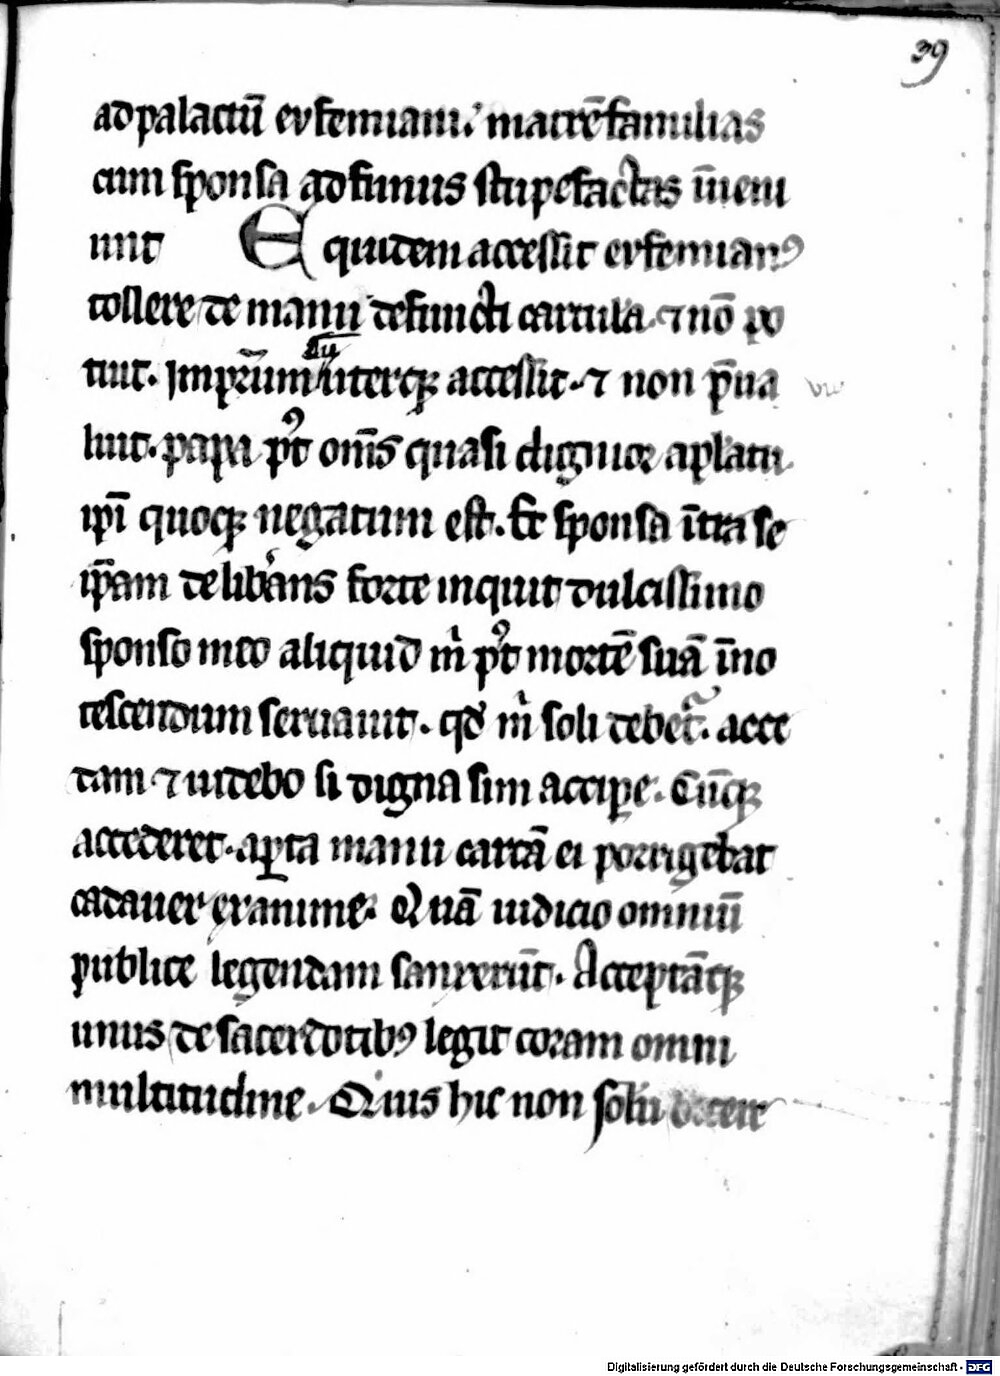 39
ad palaciū eufemiani. matrē familias
cum sponsa ad funus stupefactas īueni
unt Equidem accessit eufemianꝰ
tollere de manu defuncti cartula. ⁊ nō po
tuit. Imp̄rium uterqꝫ accessit. ⁊ non p̄ua
luit. papa pꝰt om̄s quasi dignior aplatu
ip̄i quoqꝫ negatum est. Et sponsa ītra se
ip̄am deliberans forte inquit dulcissimo
sponso meo aliquid m̄ pꝰt mortē suā īno
tescendum seruauit. qd̓ m̄ soli debet᷑. acce
dam ⁊ uidebo si digna sim accipe. Cūqꝫ
accederet. aꝑta manu cartā ei porrigebat
cadauer exanime. Quā iudicio omniū
publice legendam sanxerūt. Acceptāqꝫ
unus de sacerdotibꝰ legit coram omni
multitudine. Quis hic non solū
Digitalisierung gefördert durch die Deutsche Forschungsgemeinschaft - DFG